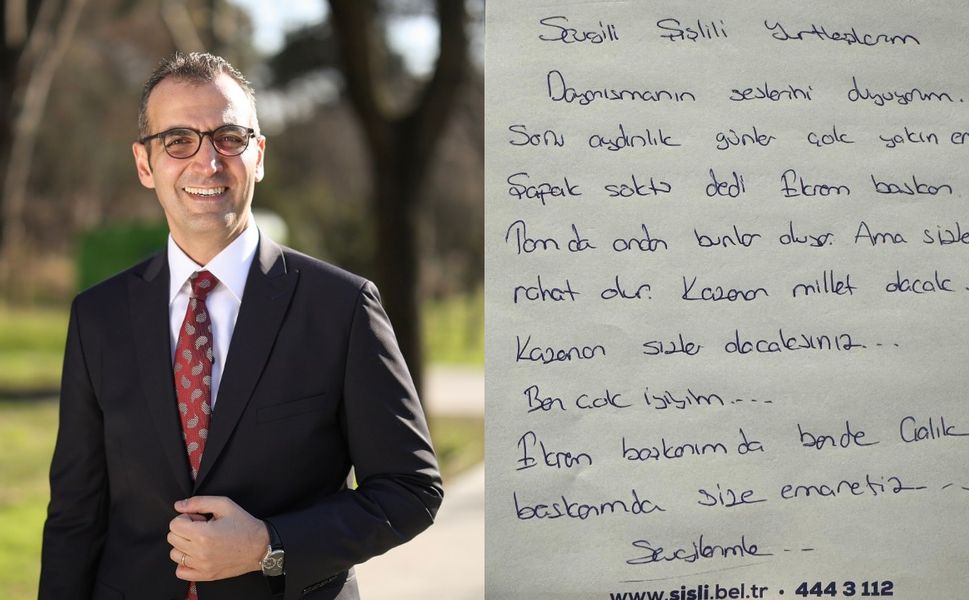 Sevgili Şişlili Yurttaşlarım
Dayanışmanın seslerini duyuyorum.
Sonu aydınlık günler çok yakın
Şafak söktü dedi Ekrem başkan.
Tam da ondan bunlar oluyor. Ama sizler
rahat olun. Kazanan millet olacak.
Kazanan sizler olacaksınız...
Ben çok iyiyim....
Ekrem başkanım da bende Çalık
başkanımda size emanetiz...
Sevgilerimle...
www.sisli.bel.tr • 444 3 112